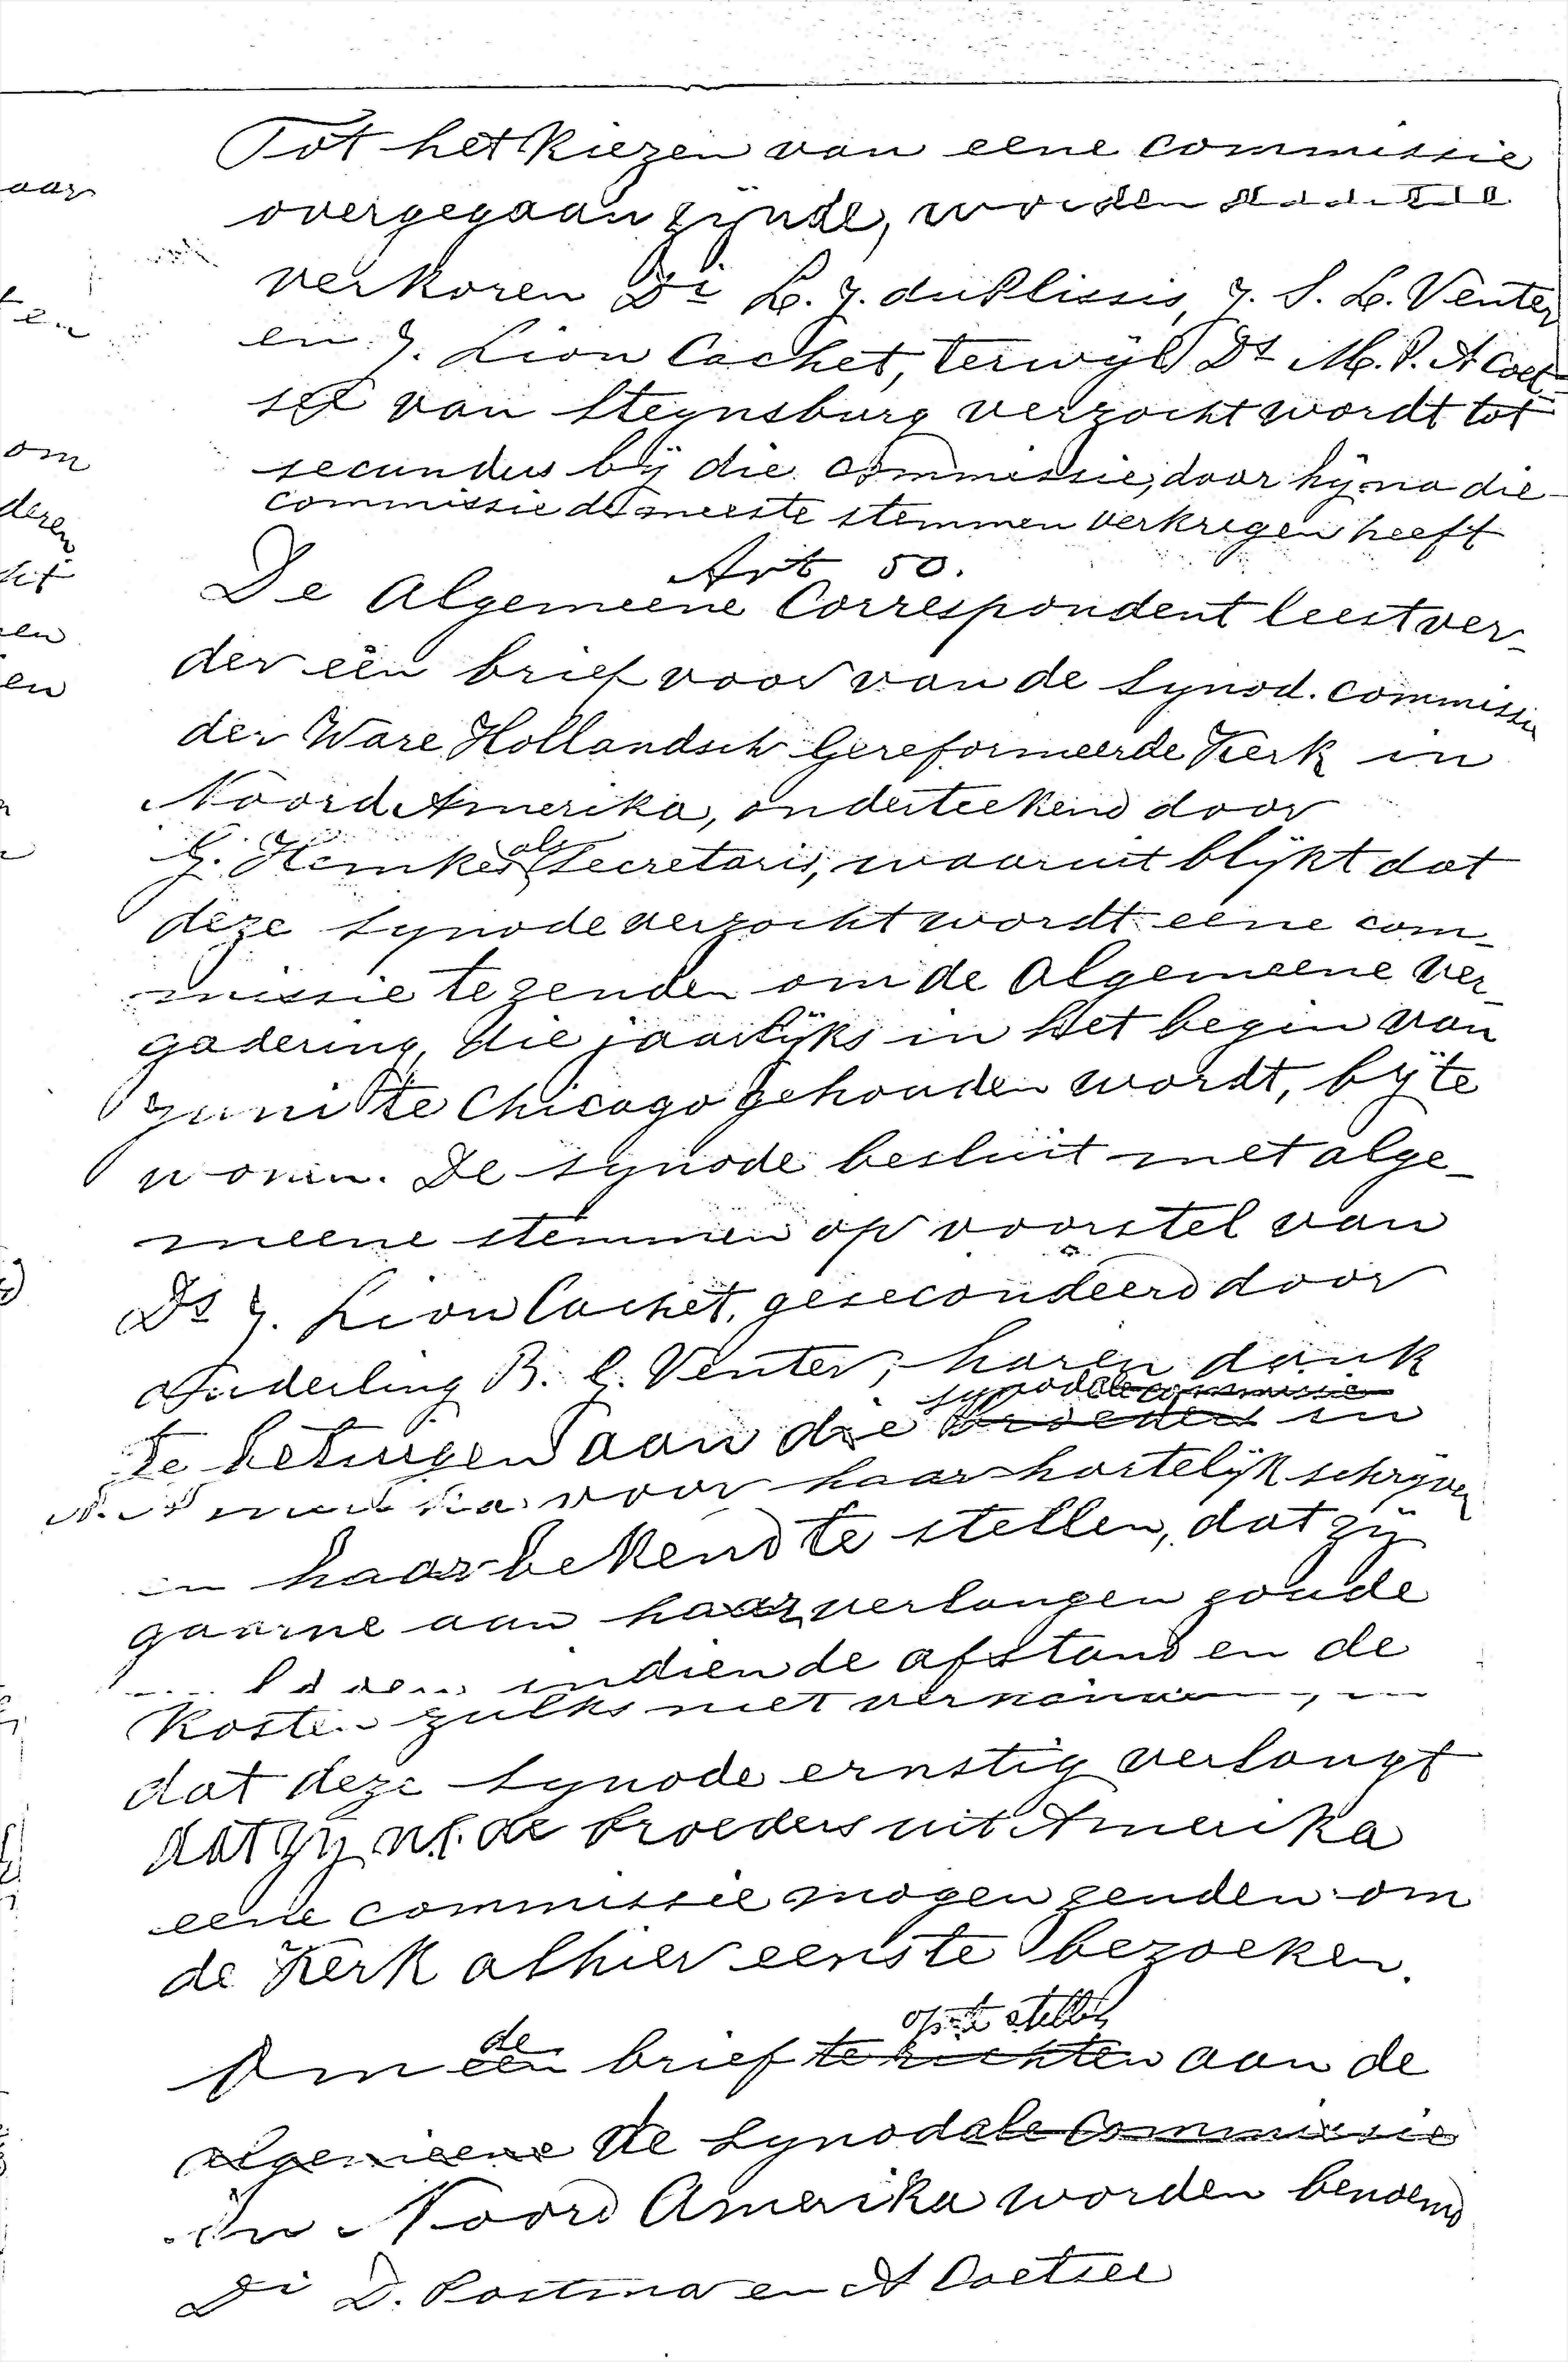 Tot het Kiezen van eene commissie
overgegaan zijnde, worden
verkoren Di L. J. du Plissis, J. S. L. Venter
en J. Lion Cachet, terwijl Ds M. P. A Coet=
see van Steynsburg verzocht wordt tot
secundus bij die commissie, daar hij na die
commissie de meeste stemmen verkregen heeft
Art 50.
De Algemeene Correspondent leest ver-
der één brief voor van de Synod. commissie
der Ware Hollandsch Gereformeerde Kerk in
Noord Amerika, onderteekend door
G. Hemkes als Secretaris, waaruit blijkt dat
deze synode verzocht wordt eene com-
missie te zenden om de Algemeene Ver-
gadering, die jaarlijks in het begin van
Juni te Chicago gehouden wordt, bij te
wonen. De synode besluit met alge-
meene stemmen op voorstel van
Ds J. Lion Cachet, gesecondeerd door
Ouderling B. G. Venter, haren dank
synodale commissie
te betuigen aan die broeders in
N. Amerika voor haar hartelijk schrijven
en haar bekend te stellen, dat zij
gaarne aan haar verlangen zoude
voldoen indien de afstand en de
Kosten zulks niet
dat deze synode ernstig verlangt
dat zij nl. de broeders uit Amerika
eene commissie mogen zenden om
de Kerk alhier eens te bezoeken.
de op te stellen
Om een brief te richten aan de
algemeene de Synodale Commissie
in Noord Amerika worden benoemd
Di D. Postma en A Coetsee
aar
ten
om
deren
het
en
en